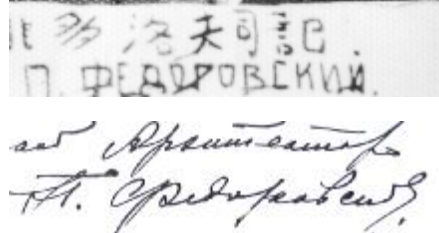 多洛夫司記.
П. ФЕДОРОВСКИЙ.
Архитектор
П. Федоровский.